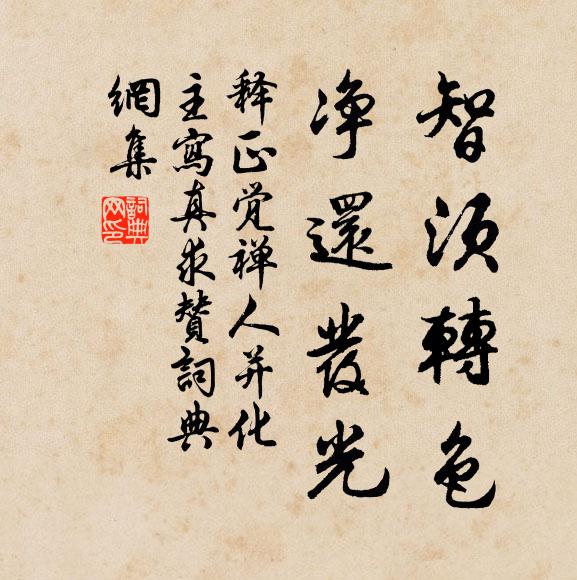 智須轉色
净還發光
释正觉禅人并化
主寫真求贊詞典
網集
詞典網印